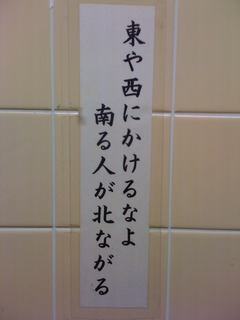 東や西にかけるなよ
南る人が北ながる